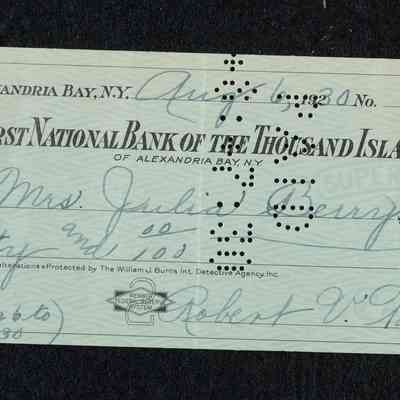 XANDRIA BAY, N.Y. Aug 6, 1930 No.
RST NATIONAL BANK OF THE THOUSAND ISLA
OF ALEXANDRIA BAY, N.Y.
Mrs. Julia Berry
ty and 00/100
alterations is Protected by The William J. Burns Int. Detective Agency, Inc.
MEMBER
FEDERAL RESERVE
SYSTEM
2
Robert V.
to)